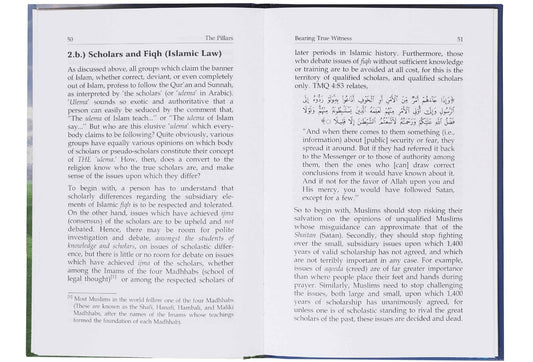 50
The Pillars
2.b.) Scholars and Fiqh (Islamic Law)
As discussed above, all groups which claim the banner
of Islam, whether correct, deviant, or even completely
out of Islam, profess to follow the Qur'an and Sunnah,
as interpreted by 'the scholars' (or 'ulema' in Arabic).
'Ulema' sounds so exotic and authoritative that a
person can easily be seduced by the comment that,
"The ulema of Islam teach..." or "The ulema of Islam
say..." But who are this elusive 'ulema' which every-
body claims to be following? Quite obviously, various
groups have equally various opinions on which body
of scholars or pseudo-scholars constitute their concept
of THE 'ulema.' How, then, does a convert to the
religion know who the true scholars are, and make
sense of the issues upon which they differ?
To begin with, a person has to understand that
scholarly differences regarding the subsidiary ele-
ments of Islamic fiqh is to be respected and tolerated.
On the other hand, issues which have achieved ijma
(consensus) of the scholars are to be upheld and not
debated. Hence, there may be room for polite
investigation and debate, amongst the students of
knowledge and scholars, on issues of scholastic differ-
ence, but there is little or no room for debate on issues
which have achieved ijma of the scholars, whether
among the Imams of the four Madhhabs (school of
legal thought)[5] or among the respected scholars of
[5] Most Muslims in the world follow one of the four Madhhabs
(These are known as the Shafi, Hanafi, Hanbali, and Maliki
Madhhabs, after the names of the Imams whose teachings
formed the foundation of each Madhhab).
Bearing True Witness
51
later periods in Islamic history. Furthermore, those
who debate issues of fiqh without sufficient knowledge
or training are to be avoided at all cost, for this is the
territory of qualified scholars, and qualified scholars
only. TMQ 4:83 relates,
﴿وَإِذَا جَاءَهُمْ أَمْرٌ مِنَ الْأَمْنِ أَوِ الْخَوْفِ أَذَاعُوا بِهِ وَلَوْ رَدُّوهُ إِلَى
الرَّسُولِ وَإِلَى أُولِي الْأَمْرِ مِنْهُمْ لَعَلِمَهُ الَّذِينَ يَسْتَنْبِطُونَهُ مِنْهُمْ وَلَوْلَا
فَضْلُ اللَّهِ عَلَيْكُمْ وَرَحْمَتُهُ لَاتَّبَعْتُمُ الشَّيْطَانَ إِلَّا قَلِيلًا﴾
"And when there comes to them something (i.e.,
information) about [public] security or fear, they
spread it around. But if they had referred it back
to the Messenger or to those of authority among
them, then the ones who [can] draw correct
conclusions from it would have known about it.
And if not for the favor of Allah upon you and
His mercy, you would have followed Satan,
except for a few."
So to begin with, Muslims should stop risking their
salvation on the opinions of unqualified Muslims
whose misguidance can approximate that of the
Shaitan (Satan). Secondly, they should stop fighting
over the small, subsidiary issues upon which 1,400
years of valid scholarship has not agreed, and which
are not terribly important in any case. For example,
issues of aqeeda (creed) are of far greater importance
than where people place their feet and hands during
prayer. Similarly, Muslims need to stop challenging
the issues, both large and small, upon which 1,400
years of scholarship has unanimously agreed, for
unless one is of scholastic standing to rival the great
scholars of the past, these issues are decided and dead.